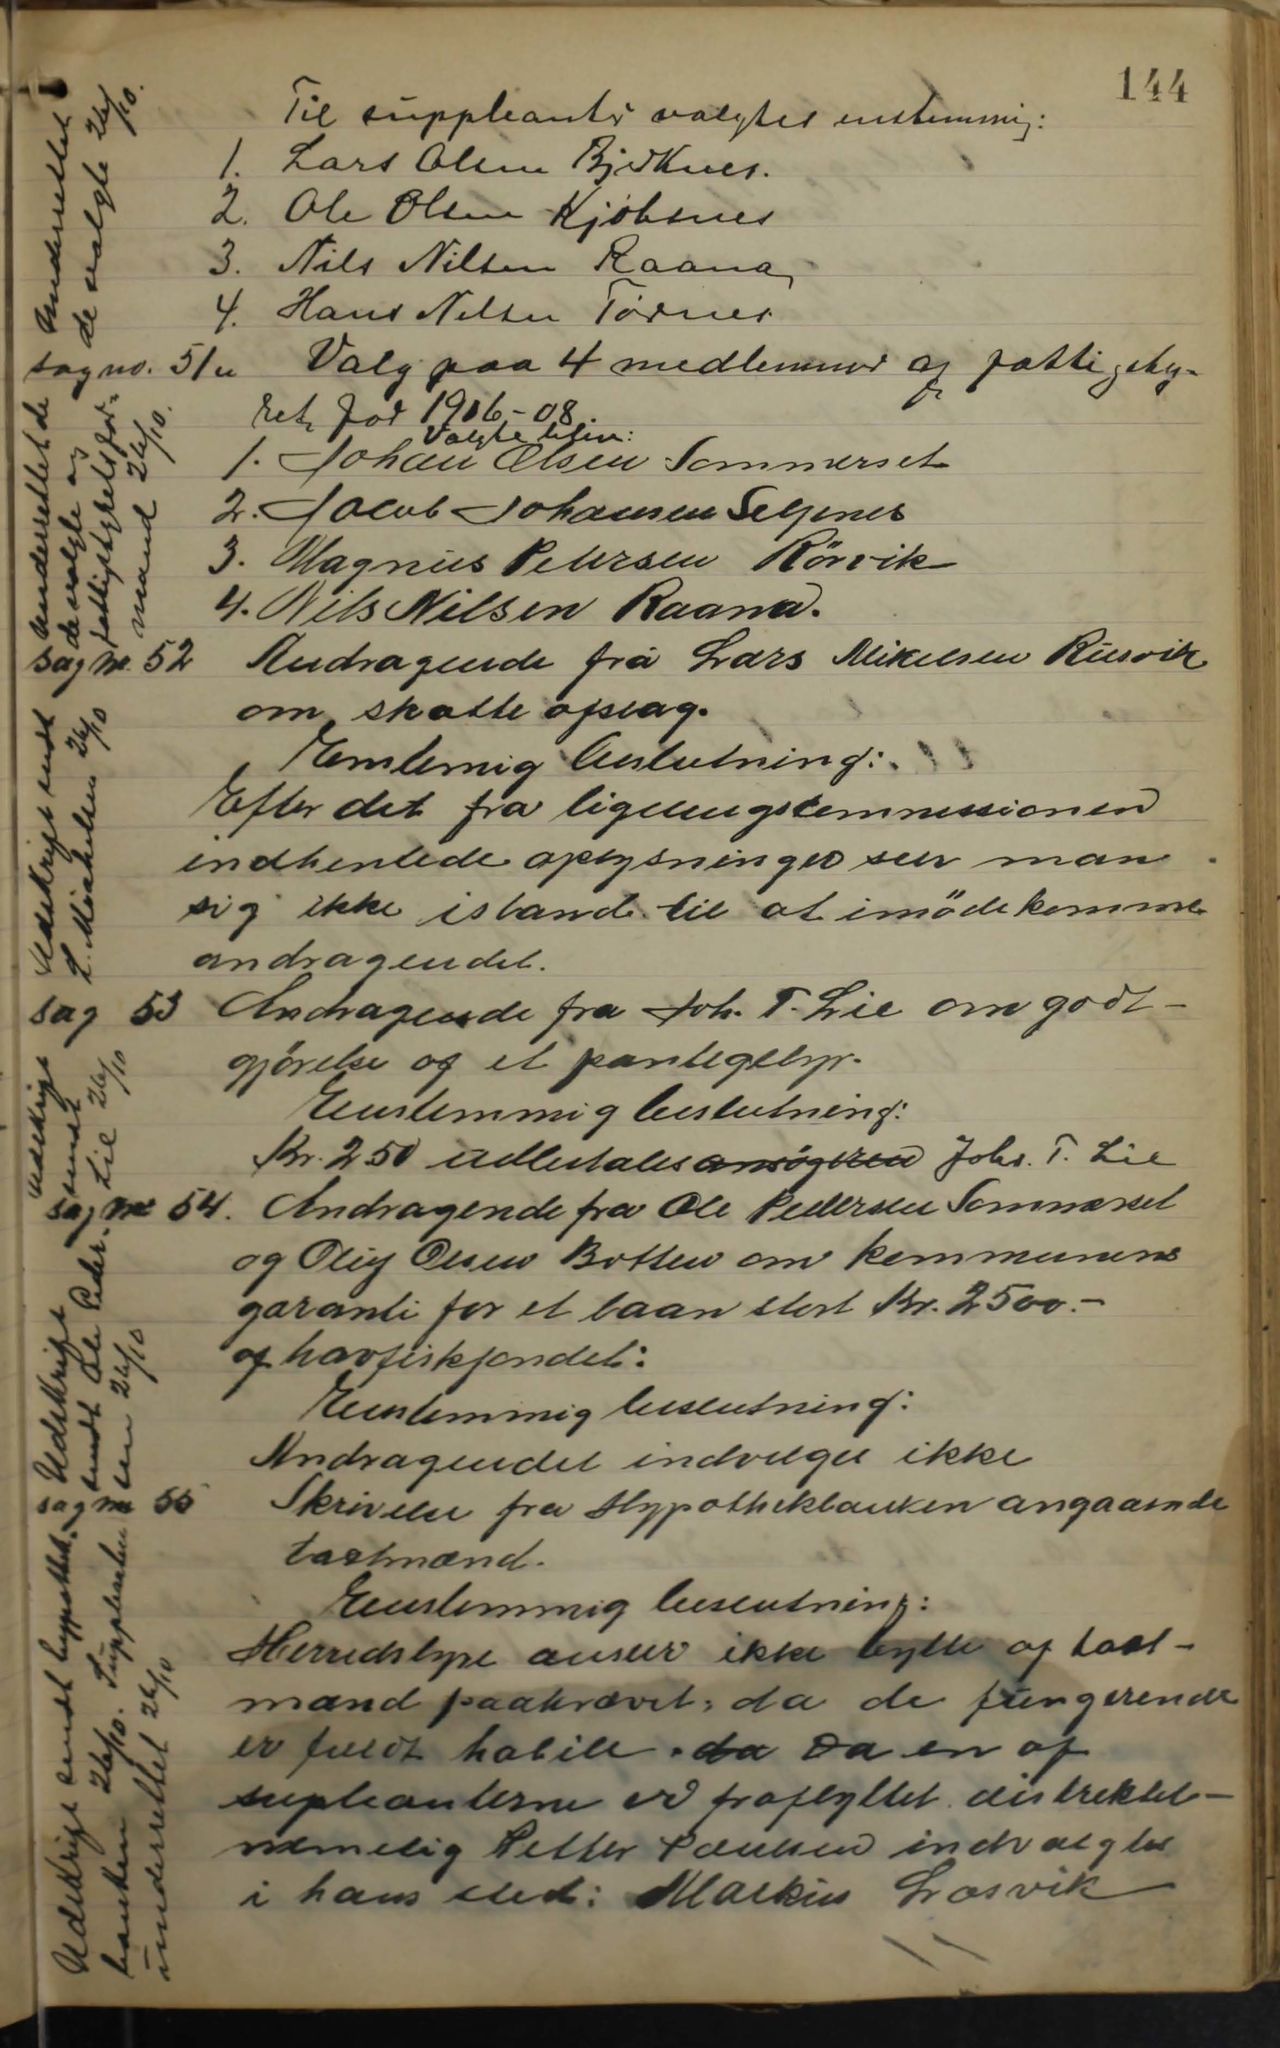 144
Til suppleanter valgtes enstemmig:
1. Lars Olsen Bjerknes.
2. Ole Olsen Kjöbsnes
3. Nils Nilsen Raana,
4. Hans Nilsen Tornes
Underrettet
de valgte 26/10.
sag no. 51 Valg paa 4 medlemmer af fattigsty-
ret for 1906-08.
Valgte blev:
1. Johan Olsen Sommerset
2. Jacob Johansen Seljenes
3. Magnus Petersen Rörvik
4. Nils Nilsen Raana.
Underrettet de
de valgte og
fattigstyrets for-
mand 26/10.
sag nr. 52 Andragende fra Lars Mikelsen Riisvik
om skatte afslag.
Enstemig beslutning:
Efter det fra ligningskommissionen
indhentede oplysninger seer man
sig ikke istand til at imödekomme
andragendet.
Udskrift sendt
L. Mikelsen 26/10
sag 53 Andragende fra Joh. T. Lie om godt-
gjörelse af et pantegebyr.
Eenstemmig beslutning:
Kr. 250 udbetales ansögeren Johs. T. Lie
Udskrift
sendt
Lie 26/10
sag nr 54. Andragende fra Ole Pedersen Sommerset
og Oluf Olsen Botten om kommunens
garanti for et laan stort Kr. 2500.-
af havfiskfondet:
Eenstemmig beslutning:
Andragendet indvilges ikke
Udskrift
sendt Ole Peder-
sen 26/10
sag nr 55 Skrivelse fra Hypothekbanken angaaende
taxtmænd.
Eenstemmig beslutning:
Herredstyre anseer ikke bytte af taxt-
mænd paakrævet, da de fungerende
er fuldt habile. da Da en af
supleanterne er fraflyttet distriktet-
nemelig Petter Paulsen indvalgtes
i hans sted: Markus Læsvik
Udskrift sendt hypothek-
banken 26/10. Suppleanten
underrettet 26/10